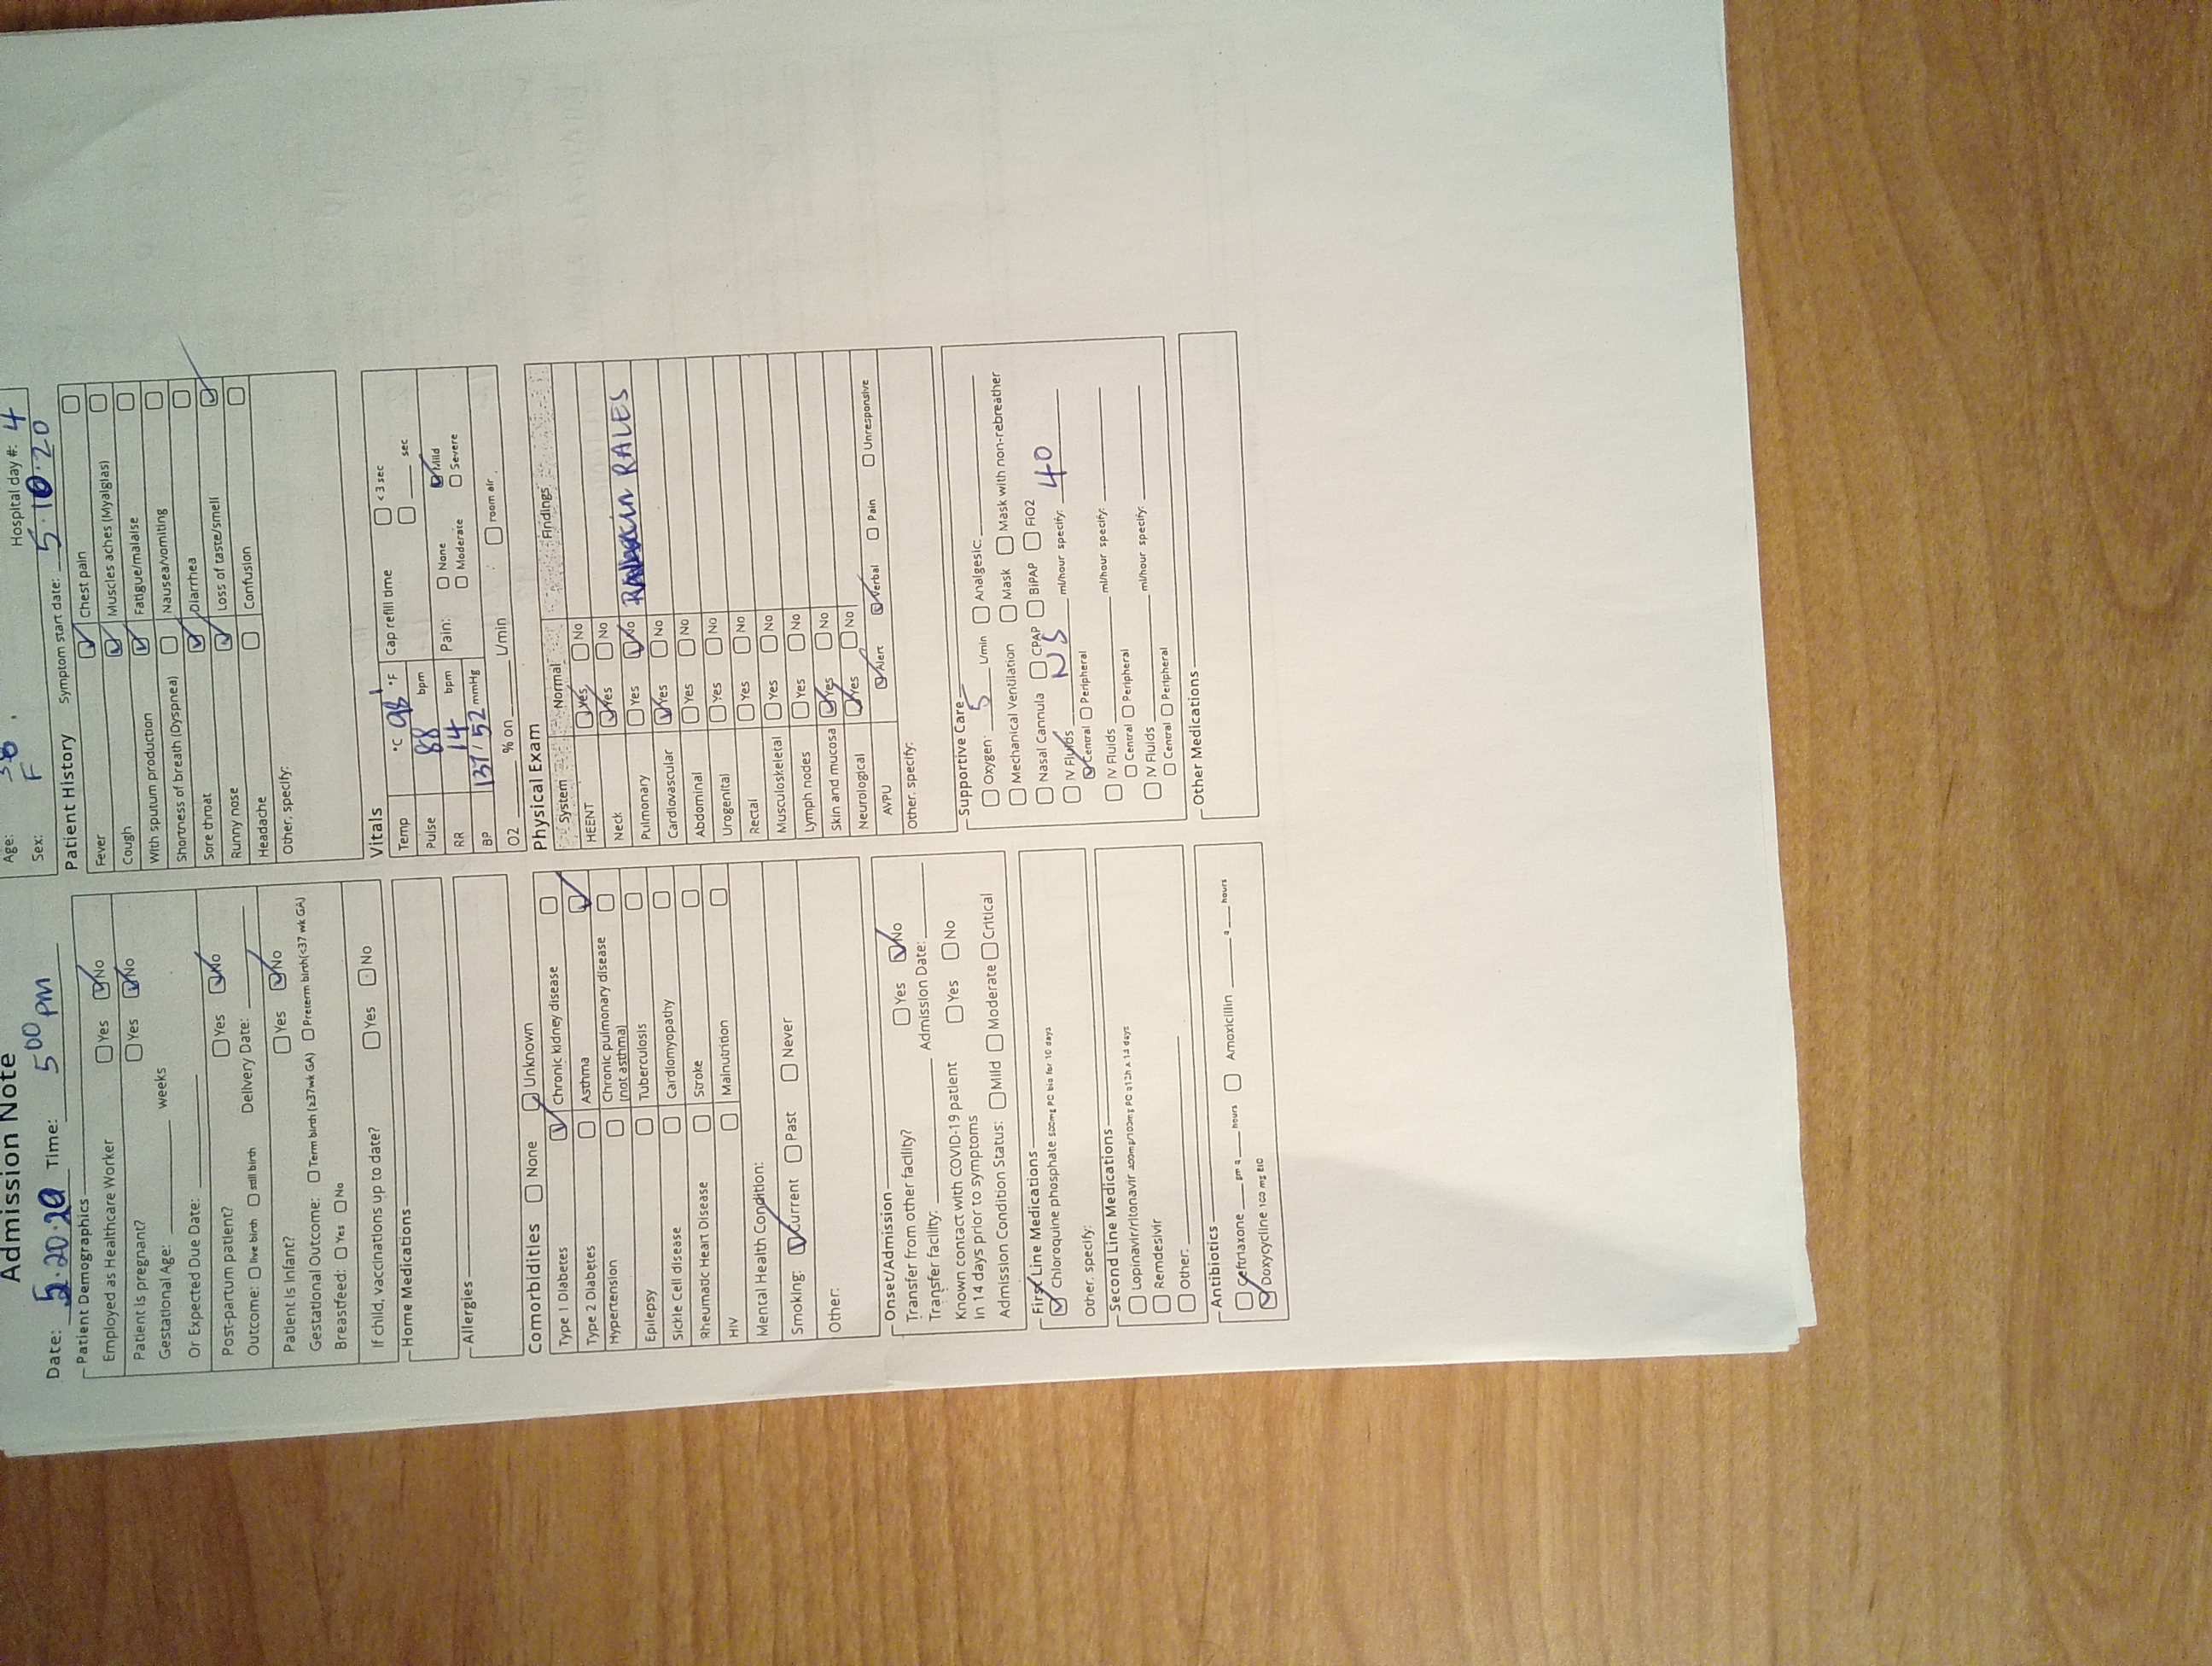 Admission Note
Date: 5.20.20 Time: 5 00 pm
Patient Demographics
Employed as Healthcare Worker Yes No
Patient is pregnant? Yes No
Gestational Age: weeks
Or Expected Due Date:
Post-partum patient? Yes No
Outcome: live birth still birth Delivery Date:
Patient is Infant? Yes No
Gestational Outcome: Term birth (≥37wk GA) Preterm birth(<37 wk GA)
Breastfeed: Yes No
If child, vaccinations up to date? Yes No
Home Medications
Allergies
Comorbidities None Unknown
Type 1 Diabetes Chronic kidney disease
Type 2 Diabetes Asthma
Hypertension Chronic pulmonary disease
(not asthma)
Epilepsy Tuberculosis
Sickle Cell disease Cardiomyopathy
Rheumatic Heart Disease Stroke
HIV Malnutrition
Mental Health Condition:
Smoking: Current Past Never
Other:
Onset/Admission
Transfer from other facility? Yes No
Transfer facility: Admission Date:
Known contact with COVID-19 patient Yes No
in 14 days prior to symptoms
Admission Condition Status: Mild Moderate Critical
First Line Medications
Chloroquine phosphate 500mg PO bid for 10 days
Other, specify:
Second Line Medications
Lopinavir/ritonavir 400mg/100mg PO q12h x 14 days
Remdesivir
Other:
Antibiotics
Ceftriaxone gm q hours Amoxicillin q hours
Doxycycline 100 mg BID
Age: Hospital day #: 4
Sex: F
Patient History Symptom start date: 5.10.20
Fever Chest pain
Cough Muscles aches (Myalgias)
With sputum production Fatigue/malaise
Shortness of breath (Dyspnea) Nausea/vomiting
Sore throat Diarrhea
Runny nose Loss of taste/smell
Headache Confusion
Other, specify:
Vitals
Temp °C 98 °F Cap refill time <3 sec
Pulse 88 bpm sec
RR 14 bpm Pain: None Mild
BP 137/52 mmHg Moderate Severe
O2 % on L/min room air
Physical Exam
System Normal Findings
HEENT Yes No
Neck Yes No
Pulmonary Yes No RALES
Cardiovascular Yes No
Abdominal Yes No
Urogenital Yes No
Rectal Yes No
Musculoskeletal Yes No
Lymph nodes Yes No
Skin and mucosa Yes No
Neurological Yes No
AVPU Alert Verbal Pain Unresponsive
Other, specify:
Supportive Care
Oxygen: 5 L/min Analgesic:
Mechanical Ventilation Mask Mask with non-rebreather
Nasal Cannula CPAP BiPAP FiO2
IV Fluids NS ml/hour specify: 40
Central Peripheral
IV Fluids ml/hour specify:
Central Peripheral
IV Fluids ml/hour specify:
Central Peripheral
Other Medications